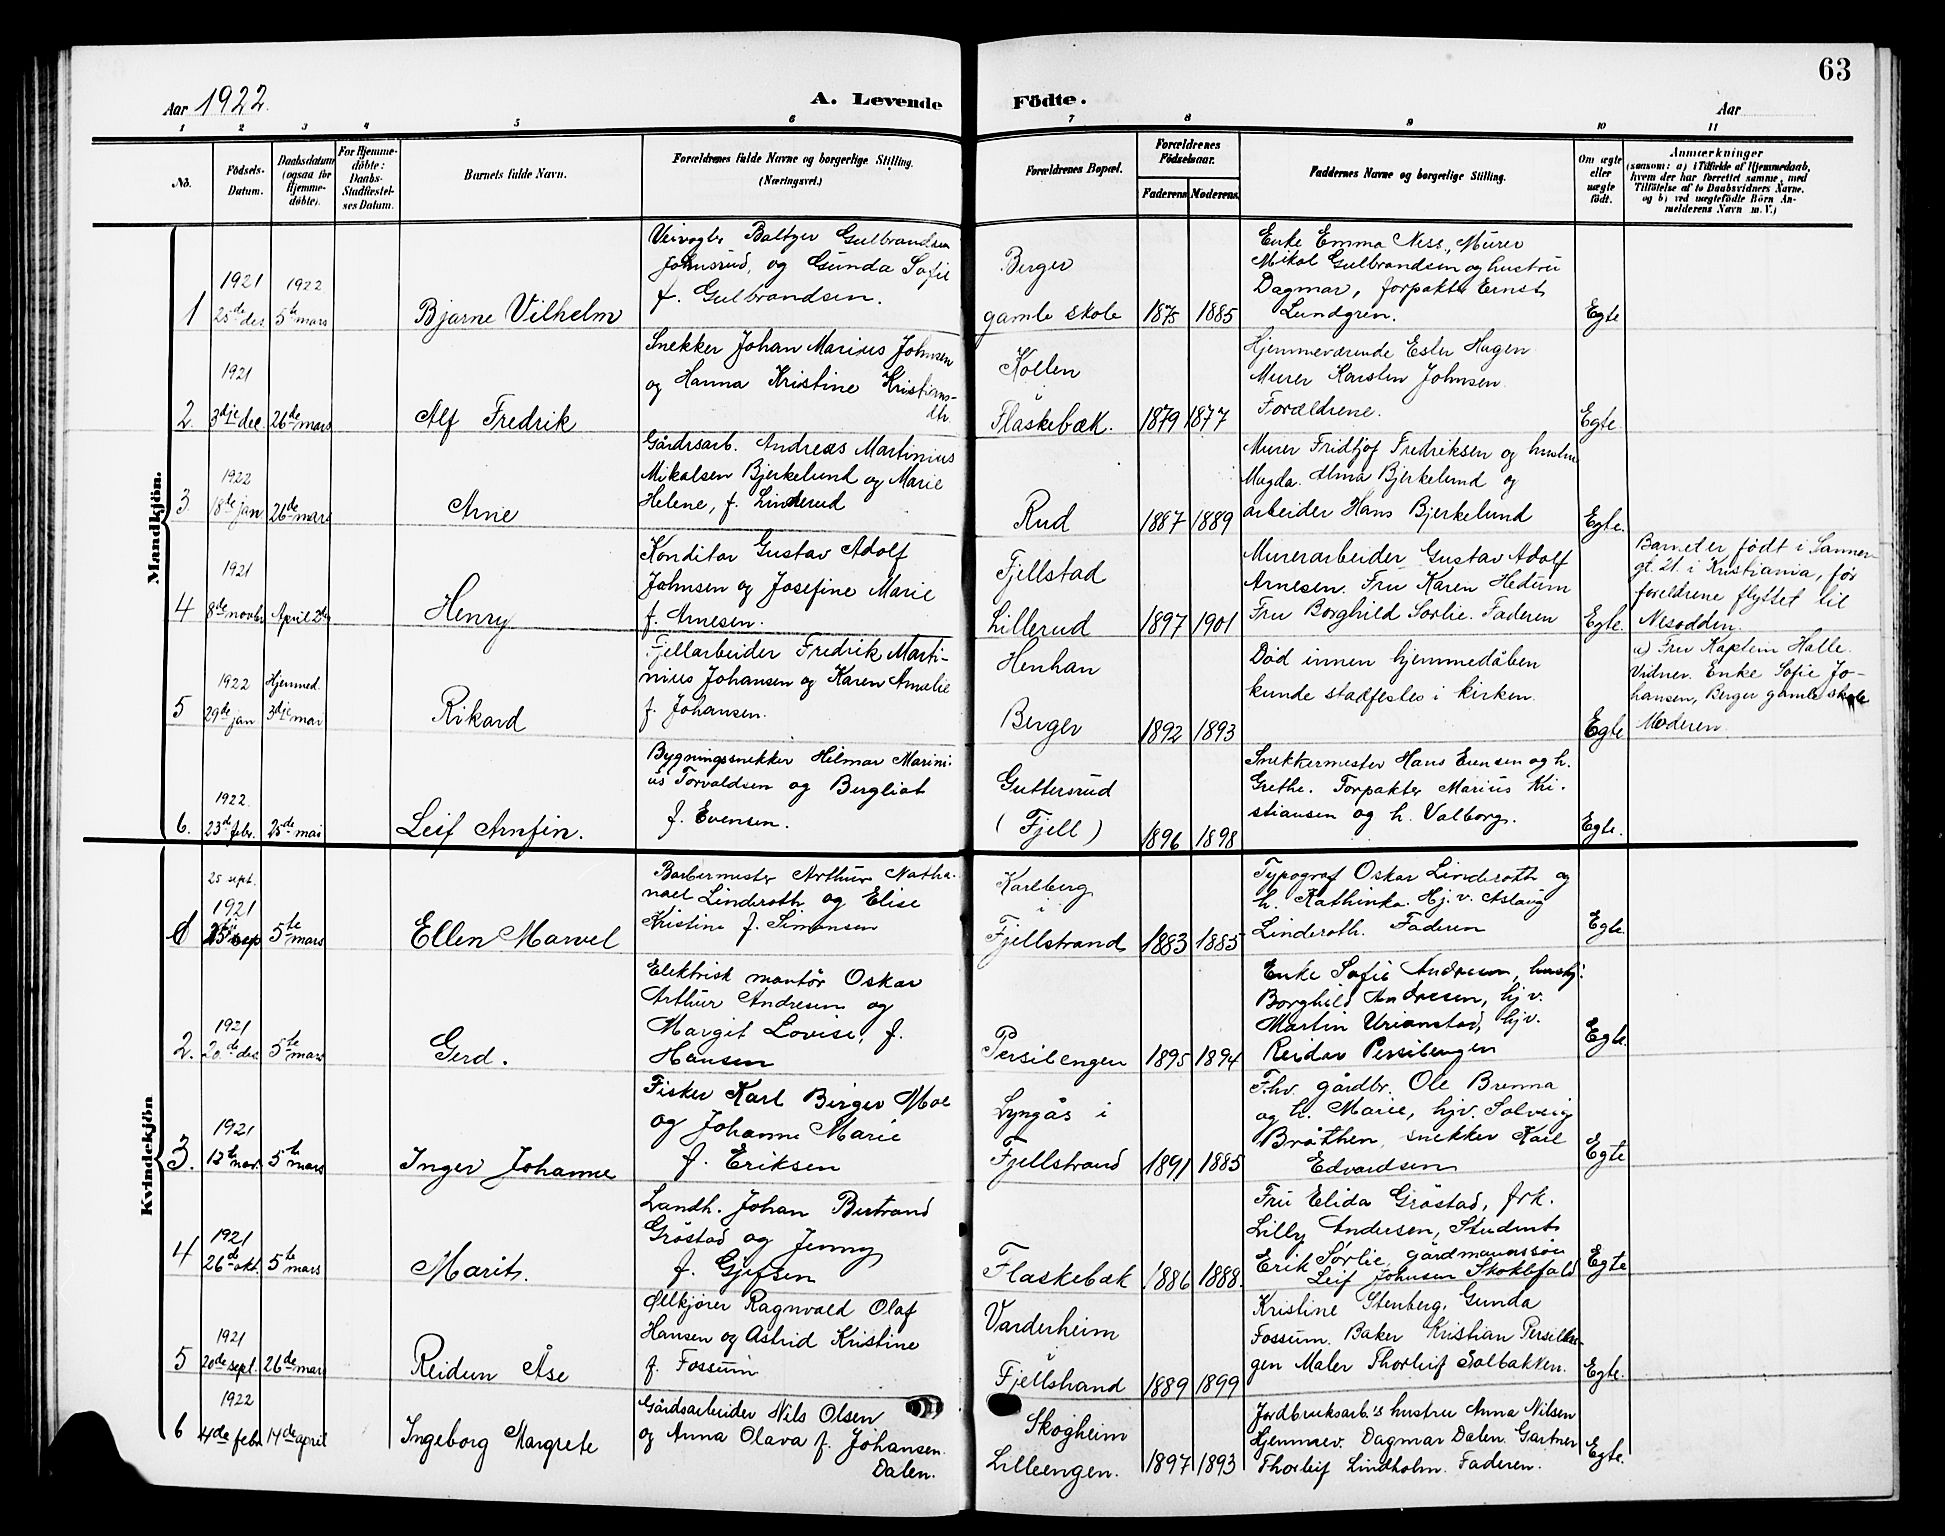 63
Aar 1922.
A. Levende Födte.
Aar
1 2 3 4 5 6 7 8 9 10 11
No.
Födsels-
Datum.
Daabsdatum
(ogsaa for
Hjemme-
döbte).
For Hjemme-
döbte:
Daabs-
Stadfæstel-
ses Datum.
Barnets fulde Navn.
Forældrenes fulde Navne og borgerlige Stilling.
(Næringsvei.)
Forældrenes Bopæl.
Forældrenes
Födselsaar.
Faderens Moderens.
Faddernes Navne og borgerlige Stilling.
Om ægte
eller
uægte
födt.
Anmærkninger
(saasom: a) i Tilfælde af Hjemmedaab,
hvem der har forrettet samme, med
Tilföielse af to Daabsvidners Navne.
og b) ved uægtefödte Börn An-
melderens Navn m. V.)
Mandkjön.
1
1921
25de des
1922
5te mars
Bjarne Vilhelm
Veivogter Baltzer Gulbrandsen
Johnsrud, og Gunda Sofie
f. Gulbrandsen.
Berger
gamle skole
1875
1885
Enke Emma Ness, Murer
Mikal Gulbrandsen og hustru
Dagmar, forpakter Ernst
Lundgren.
Egte
2
1921
3dje dec.
26de mars
Alf Fredrik
Snekker Johan Marius Johnsen
og Hanna Kristine Kristians-
dtr.
Kollen
Flaskebæk.
1879
1877
Hjemmeværende Ester Hagen
Murer Karsten Johnsen.
Forældrene.
Egte
3
1922
18de jan
26de mars
Arne
Gårdsarb. Andreas Martinius
Mikalsen Bjerkelund og Marie
Helene, f. Linderud
Rud
1887
1889
Murer Fridtjof Fredriksen og hustru
Magda. Alma Bjerkelund og
arbeider Hans Bjerkelund
Egte.
4
1921
8de novbr
April 2den
Henry
Konditor Gustav Adolf
Johnsen og Josefine Marie
f. Arnesen.
Fjellstad
Lillerud
1897
1901
Murerarbeider Gustav Adolf
Arnesen. Fru Karen Hedum
Fru Borghild Sorlie. Faderen
Egte.
Barnet er født i Sanner-
gt. 21. i Kristiania, før
foreldrene flyttet til
Nesodden.
5
1922
29de jan
Hjemmed.
3dje mar
Rikard
Fjellarbeider Fredrik Marti-
nius Johansen og Karen Amalie
f. Johansen.
Henhan
Berger
1892
1893
Død innen hjemmedåben
kunde stadfestes i kirken.
Egte
a) Fru Kaptein Halle.
Vidner. Enke Sofie Jo-
hansen, Berger gamle skole
Moderen.
6.
1922.
23de febr.
25de mai
Leif Arnfin.
Bygningssnekker Hilmar Marini-
us Torvaldsen og Bergliot
f. Evensen.
Guttersrud
(Fjell)
1896
1898
Snekkermester Hans Evensen og h.
Grethe. Forpakter Marius Kri-
stiansen og h. Valborg.
Egte.
Kvindekjön
1
25 sept.
1921
5te mars
Ellen Marvel
Barbermester Arthur Natha-
nael Linderoth og Elise
Kristine f. Simensen
Karlberg
i
Fjellstrand
1883
1885
Typograf Oskar Linderoth og
h. Kathinka. Hj. v. Aslaug
Linderoth. Faderen
Egte.
2.
1921
20de des
5te mars
Gerd.
Elektrisk montör Oskar
Arthur Andresen og
Margit Lovise, f.
Hansen
Persilengen
1895
1894
Enke Sofie Andresen, hush.
Borghild Andresen, hj v.
Martin Urianstad, hjv.
Reidar Persilengen
Egte.
3.
1921
1922
5te mars
Inger Johanne
Fisker Karl Birger Moe
og Johanne Marie
f. Eriksen
Lyngås i
Fjellstrand
1891
1885
Fhv. gårdbr. Ole Brenna
og h. Marie, hjv. Solveig
Bråthen, snekker Karl
Edvardsen
Egte
4
1921
26de okt.
5te mars
Marit.
Landh. Johan Bertrand
Gröstad og Jenny
f. Gjefsen
Flaskebæk
1886
1888.
Fru Elida Gröstad, frk.
Lilly Andersen, Student
Erik Sørlie, gårdmannssön
Leif Johnsen Skoklefald
Egte
5
1921
20de sept.
26de mars
Reidun Åse
Ølkjører Ragnvald Olaf
Hansen og Astrid Kristine
f. Fossum
Varderheim
Fjellstrand
1889
1899
Kristine Stenberg, Gunda
Fossum. Baker Kristian Persilen-
gen Maler Thorleif Solbakken.
Egte.
6
1922
4de febr.
14de april
Ingeborg Margrete
Gårdsarbeider Nils Olsen
og Anna Olava f. Johansen
Dalen.
Skogheim
Lilleengen.
1897
1893
Jordbruksarb.'s hustru Anna Nilsen
Hjemmev. Dagmar Dalen. Gartner
Thorleif Lindholm. Faderen.
Egte.